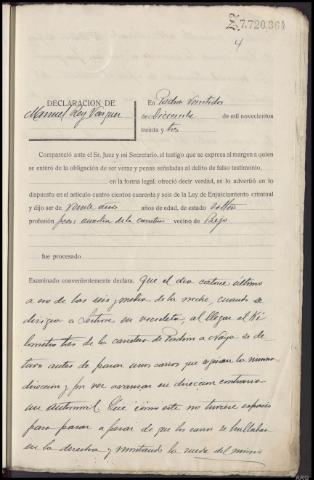 Z.7.720.364
4
DECLARACION DE
Manuel Rey Vazquez
En Padron veintidos
de Diciembre de mil novecientos
treinta y tres
Compareció ante el Sr. Juez y mi Secretario, el testigo que se expresa al margen a quien
se enteró de la obligación de ser veraz y penas señaladas al delito de falso testimonio,
en la forma legal, ofreció decir verdad, se lo advertió en lo
dispuesto en el artículo cuatro cientos cuarenta y seis de la Ley de Enjuiciamiento criminal
y dijo ser de veinte años de edad, de estado soltero
profesión de la carretera vecino de
fue procesado
Examinado convenientemente declara. Que el dia catorce último
a eso de las seis y media de la noche, cuando se
dirigia a en bicicleta al llegar al
kilometro tres de la carretera de Padron a Noya se de-
tuvo antes de pasar unos carros que seguian la misma
direccion y por ver avanzar en direccion contraria
un automovil. Que como este no tuviese espacio
para pasar a pesar de que los carros se hallaban
en la derecha y montando la rueda del mismo